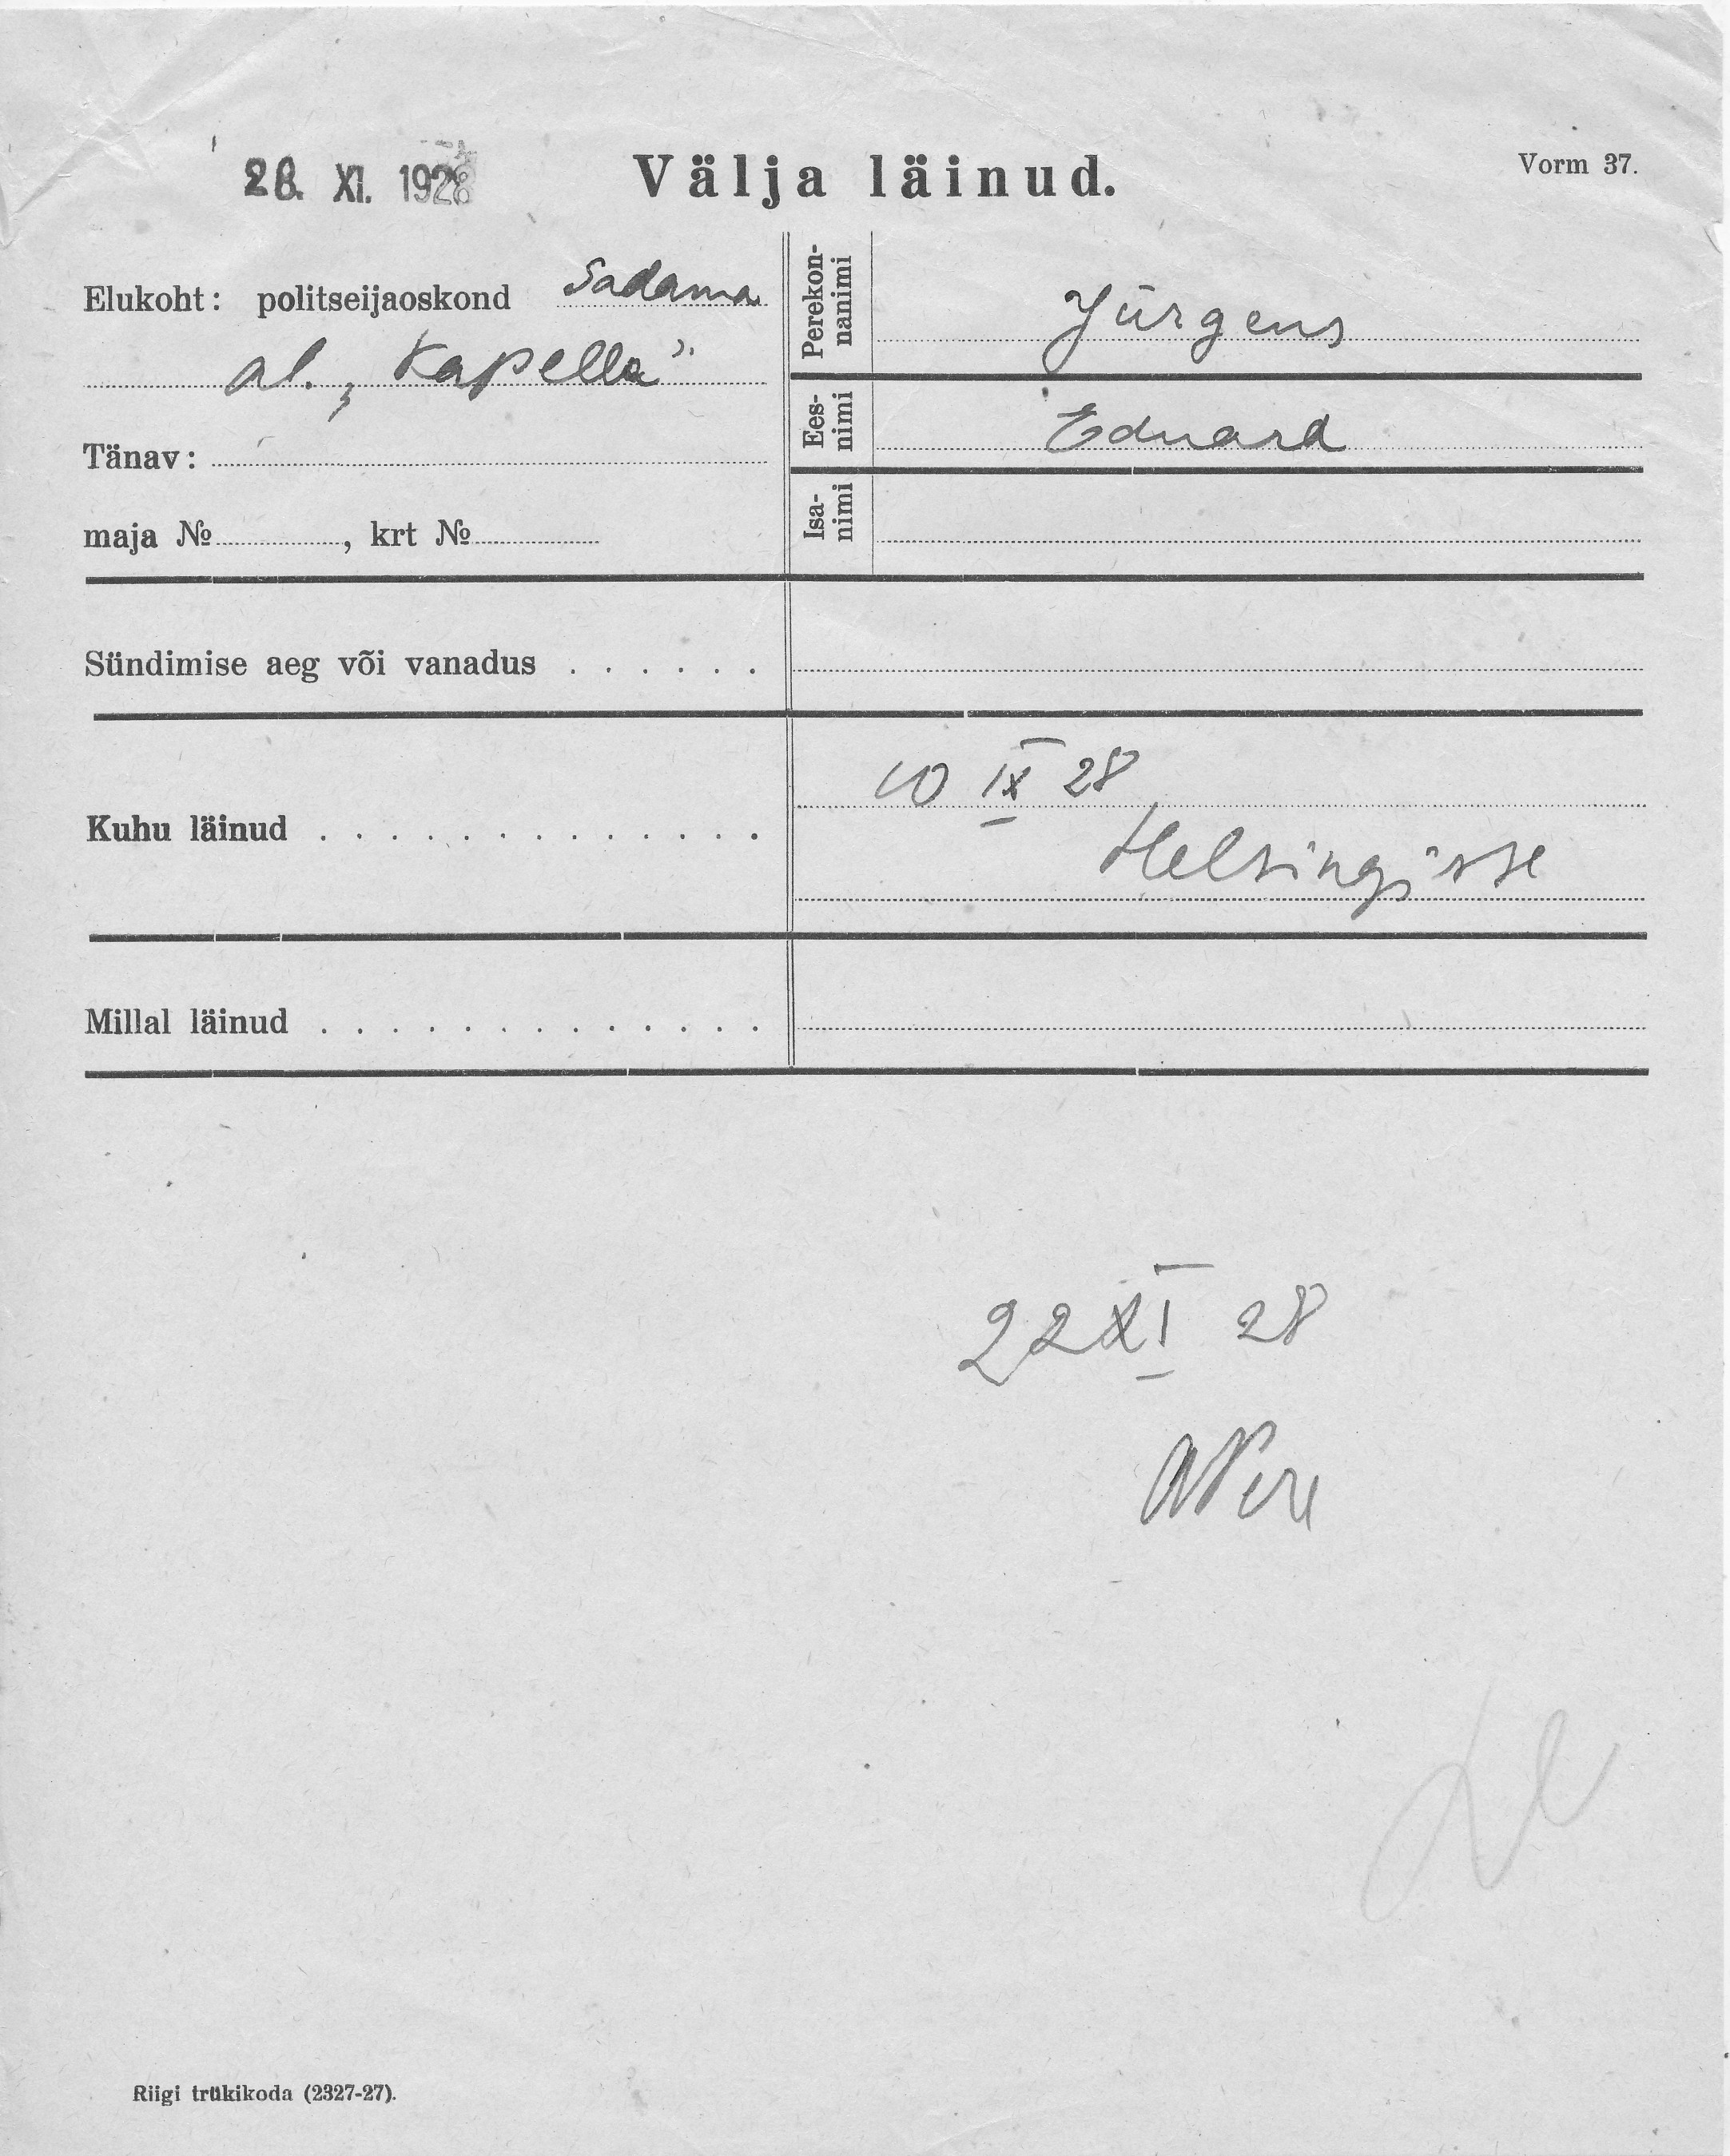 26. XI. 1928
Välja läinud.
Vorm 37.
Elukoht: politseijaoskond Sadama
al. „Kapella”
Tänav:
maja №, krt №
Perekon-
nanimi
Jürgens
Ees-
nimi
Eduard
Isa-
nimi
Sündimise aeg või vanadus . . . . . .
Kuhu läinud . . . . . . . . . . . . .
10 IX 28
Helsingisse
Millal läinud . . . . . . . . . . . . .
22 XI 28
Riigi trükikoda (2327-27).